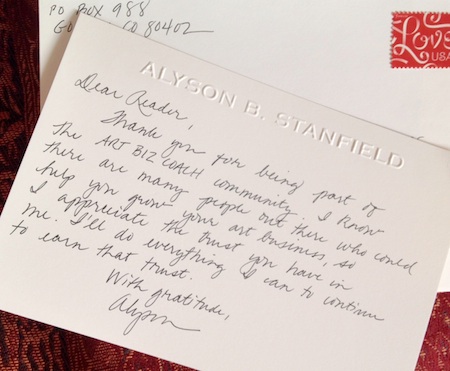 PO BOX 988
GO CO 80402
Love
USA
ALYSON B. STANFIELD
Dear Reader,
Thank you for being part of
the ART BIZ COACH community. I know
there are many people out there who could
help you grow your art business, so
I appreciate the trust you have in
me. I'll do everything I can to continue
to earn that trust.
With gratitude,
Alyson